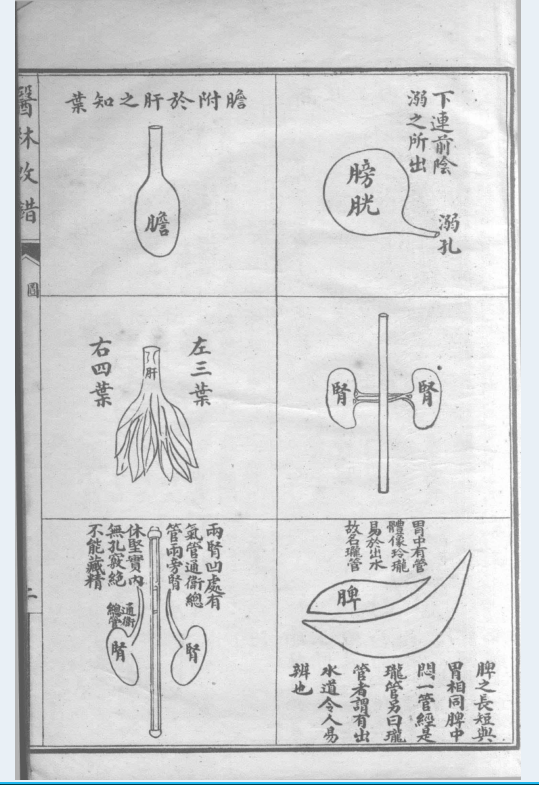 下連前陰
溺之所出
膀胱
溺孔
膽附於肝之知葉
膽
腎
腎
左三葉
肝
右四葉
胃中有管
體像玲瓏
易於出水
故名瓏管
脾
脾之長短與
胃相同脾中
悶一管經是
瓏管另曰瓏
管者謂有出
水道令人易
辨也
兩腎凹處有
氣管通衛總
管兩旁腎
体堅實內
無孔竅絕
不能藏精
腎
通衛
總管
腎
醫林改錯
圖
二